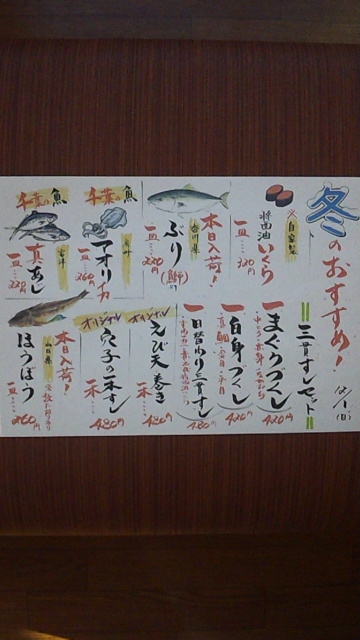 冬のおすすめ!
12/1(日)
自家製
醤油いくら
一皿…320円
本日入荷!
香川県
ぶり(鰤)
一皿…220円
千葉の魚
アオリイカ
一皿…260円
千葉の魚
真あじ
一皿…220円
三貫すしセット
一まぐろづくし
420円
一白身づくし
420円
一日替わり三貫すし
480円
オリジナル
えび天巻き
一本…480円
オリジナル
穴子の一本すし
一本…480円
本日入荷!
ほうぼう
一皿…260円